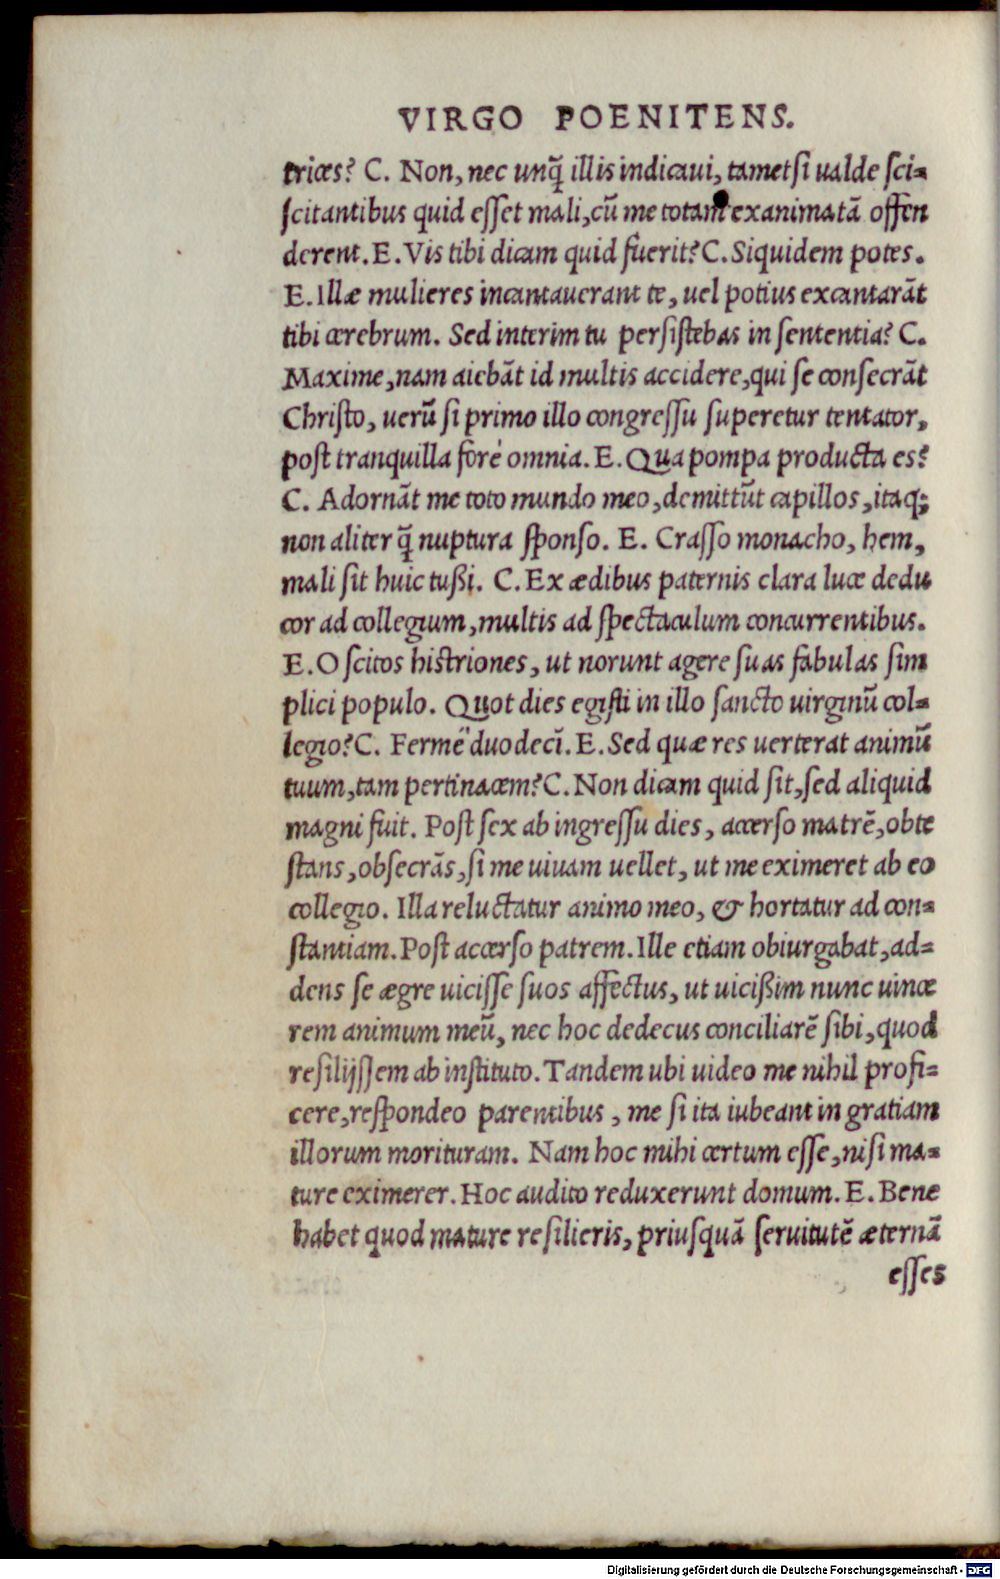 VIRGO POENITENS.
trices? C. Non, nec unq̃ illis indicaui, tametsi ualde sci=
scitantibus quid esset mali, cũ me totam exanimatã offen
derent. E. Vis tibi dicam quid fuerit? C. Siquidem potes.
E. Illæ mulieres incantauerant te, uel potius excantarãt
tibi cerebrum. Sed interim tu persistebas in sententia? C.
Maxime, nam aiebãt id multis accidere, qui se consecrãt
Christo, uerũ si primo illo congressu superetur tentator,
post tranquilla fore omnia. E. Qua pompa producta es?
C. Adornãt me toto mundo meo, demittũt capillos, itaq;
non aliter q̃ nuptura sponso. E. Crasso monacho, hem,
mali sit huic tußi. C. Ex ædibus paternis clara luce dedu
cor ad collegium, multis ad spectaculum concurrentibus.
E. O scitos histriones, ut norunt agere suas fabulas sim
plici populo. Quot dies egisti in illo sancto uirginũ col=
legio? C. Ferme duodecĩ. E. Sed quæ res uerterat animũ
tuum, tam pertinacem? C. Non dicam quid sit, sed aliquid
magni fuit. Post sex ab ingressu dies, accerso matrẽ, obte
stans, obsecrãs, si me uiuam uellet, ut me eximeret ab eo
collegio. Illa reluctatur animo meo, & hortatur ad con=
stantiam. Post accerso patrem. Ille etiam obiurgabat, ad=
dens se ægre uicisse suos affectus, ut uicißim nunc uince
rem animum meũ, nec hoc dedecus conciliarẽ sibi, quod
resilijssem ab instituto. Tandem ubi uideo me nihil profi=
cere, respondeo parentibus, me si ita iubeant in gratiam
illorum morituram. Nam hoc mihi certum esse, nisi ma=
ture eximerer. Hoc audito reduxerunt domum. E. Bene
habet quod mature resilieris, priusquã seruitutẽ æternã
esses
Digitalisierung gefördert durch die Deutsche Forschungsgemeinschaft - DFG